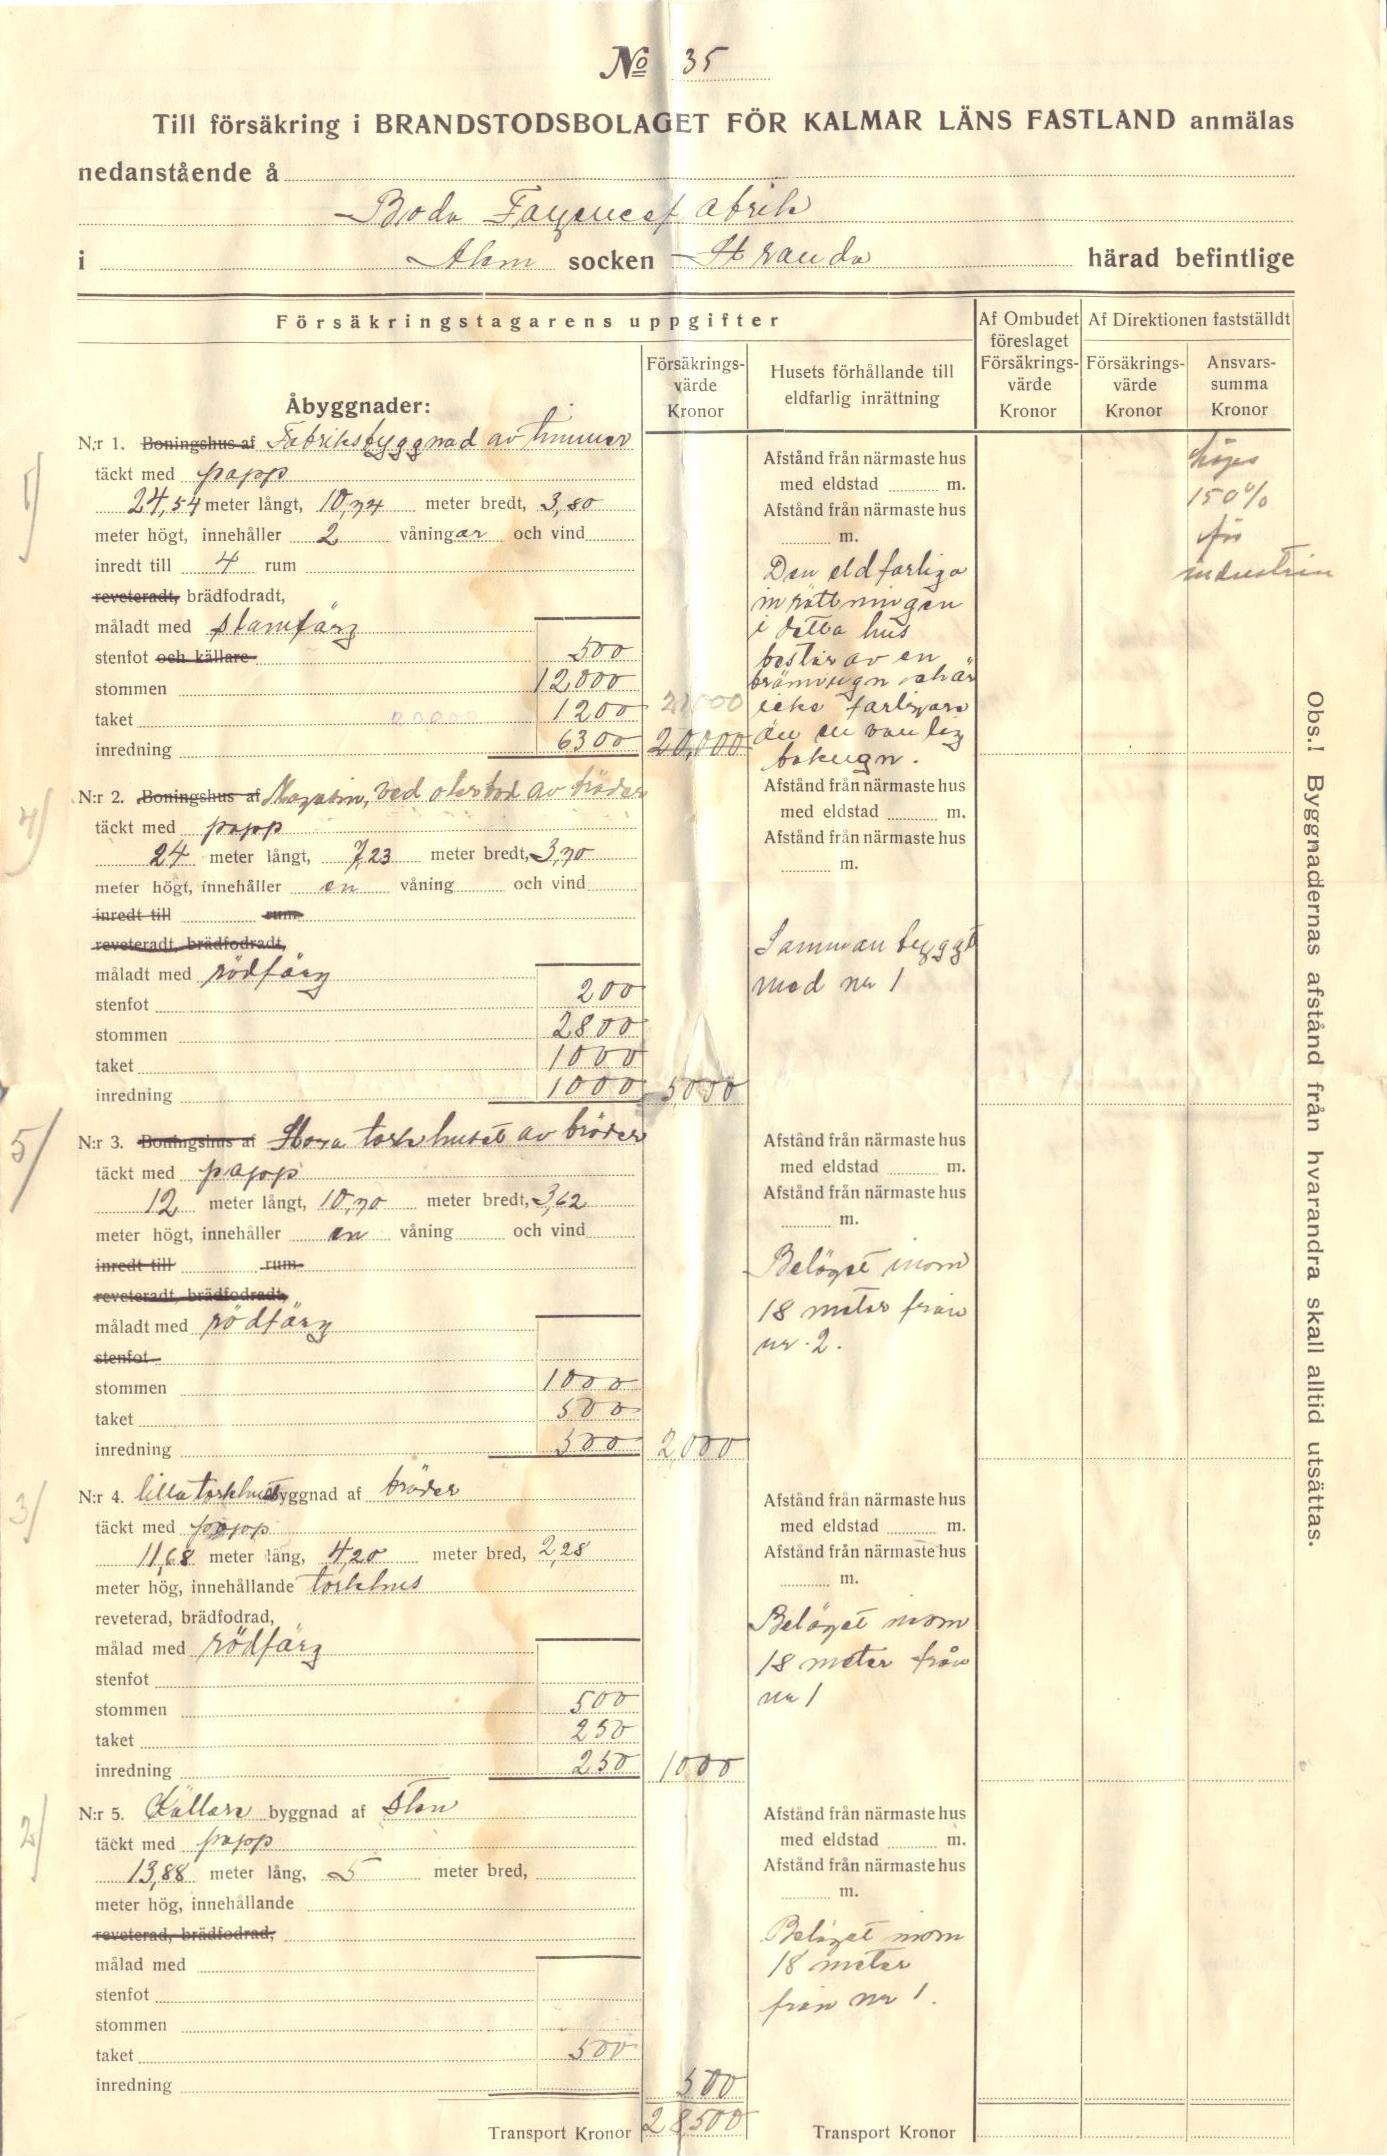 No 35
Till försäkring i BRANDSTODSBOLAGET FÖR KALMAR LÄNS FASTLAND anmälas
nedanstående å
Boda Fayencefabrik
i Alem socken Stranda härad befintlige
Försäkringstagarens uppgifter
Af Ombudet föreslaget Försäkringsvärde Kronor
Af Direktionen fastställdt
Försäkrings-värde Kronor
Husets förhållande till eldfarlig inrättning
Försäkrings-värde Kronor
Ansvars-summa Kronor
Åbyggnader:
N:r 1. Boningshus af Fabriksbyggnad av timmer
täckt med papp
24,54 meter långt, 10,74 meter bredt, 3,80
meter högt, innehåller 2 våningar och vind
inredt till 4 rum
reveteradt, brädfodradt,
måladt med slamfärg
stenfot och källare 500
stommen 12000
taket 20000 1200 21000
inredning 6300 20,000
Afstånd från närmaste hus
med eldstad m.
Afstånd från närmaste hus
m.
Den eldfarliga
inrättningen
i detta hus
består av en
brännugn och är
icke farligare
än en vanlig
bakugn.
höjes
150%
för
industrin
N:r 2. Boningshus af Magasin, ved o kerbod av bräder
täckt med papp
24 meter långt, 7,23 meter bredt, 3,70
meter högt, innehåller en våning och vind
inredt till rum
reveteradt, brädfodradt,
måladt med rödfärg
stenfot 200
stommen 2800
taket 1000
inredning 1000 5000
Afstånd från närmaste hus
med eldstad m.
Afstånd från närmaste hus
m.
Sammanbyggt
med nr 1
N:r 3. Boningshus af Stora torkhuset av bräder
täckt med papp
12 meter långt, 10,70 meter bredt, 3,62
meter högt, innehåller en våning och vind
inredt till rum
reveteradt, brädfodradt,
måladt med rödfärg
stenfot
stommen 1000
taket 500
inredning 500 2000
Afstånd från närmaste hus
med eldstad m.
Afstånd från närmaste hus
m.
Beläget inom
18 meter från
nr. 2.
N:r 4. lilla torkhuset byggnad af bräder
täckt med papp
11,68 meter lång, 4,20 meter bred, 2,28
meter hög, innehållande torkhus
reveterad, brädfodrad,
målad med rödfärg
stenfot
stommen 500
taket 250
inredning 250 1000
Afstånd från närmaste hus
med eldstad m.
Afstånd från närmaste hus
m.
Beläget inom
18 meter från
nr 1
N:r 5. Källare byggnad af sten
täckt med papp
13,88 meter lång, 5 meter bred,
meter hög, innehållande
reveterad, brädfodrad,
målad med
stenfot
stommen
taket 500
inredning 500
Afstånd från närmaste hus
med eldstad m.
Afstånd från närmaste hus
m.
Beläget inom
18 meter
från nr 1.
Transport Kronor 28500 Transport Kronor
1)
4)
5)
3)
2)
Obs.! Byggnadernas afstånd från hvarandra skall alltid utsättas.